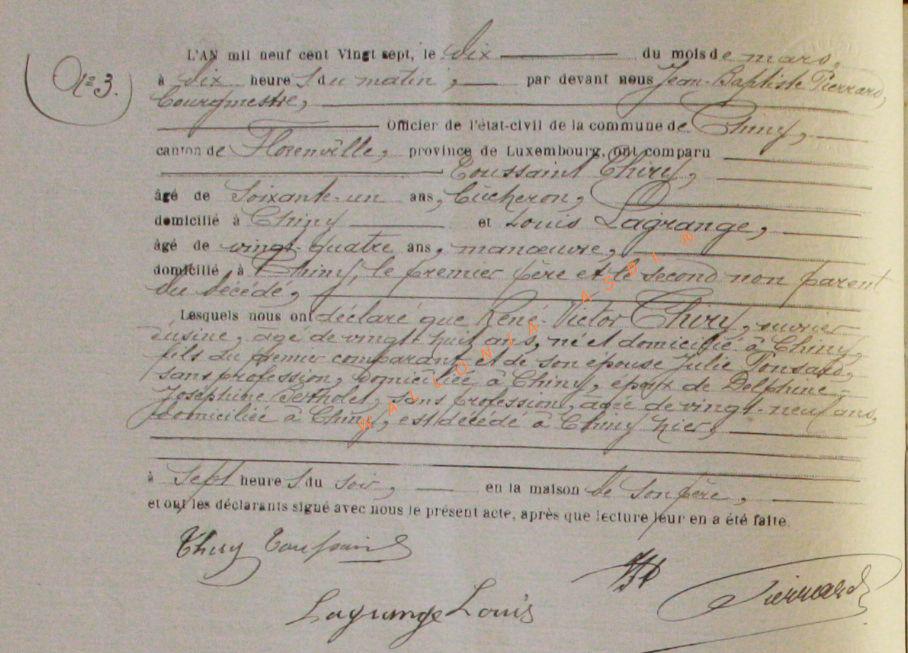 N° 3.
L'AN mil neuf cent Vingt sept, le dix du mois de mars,
à dix heures du matin, par devant nous Jean-Baptiste Pierrard,
bourgmestre,
Officier de l'état-civil de la commune de Chiny,
canton de Florenville, province de Luxembourg, ont comparu
Toussaint Thiry,
âgé de soixante-un ans, bûcheron,
domicilié à Chiny et Louis Lagrange,
âgé de vingt-quatre ans, manœuvre,
domicilié à Chiny, le premier père et le second non parent
du décédé,
Lesquels nous ont déclaré que René-Victor Thiry, ouvrier
d'usine, âgé de vingt-huit ans, né et domicilié à Chiny,
fils du premier comparant et de son épouse Julie Ponsard,
sans profession, domiciliée à Chiny, époux de Delphine-
Joséphine Bertholet, sans profession, âgée de vingt-neuf ans,
domiciliée à Chiny, est décédé à Chiny hier,
à sept heures du soir, en la maison de son père,
et ont les déclarants signé avec nous le présent acte, après que lecture leur en a été faite.
Thiry Toussaint
Lagrange Louis
Pierrard
WALLONIA ASBL